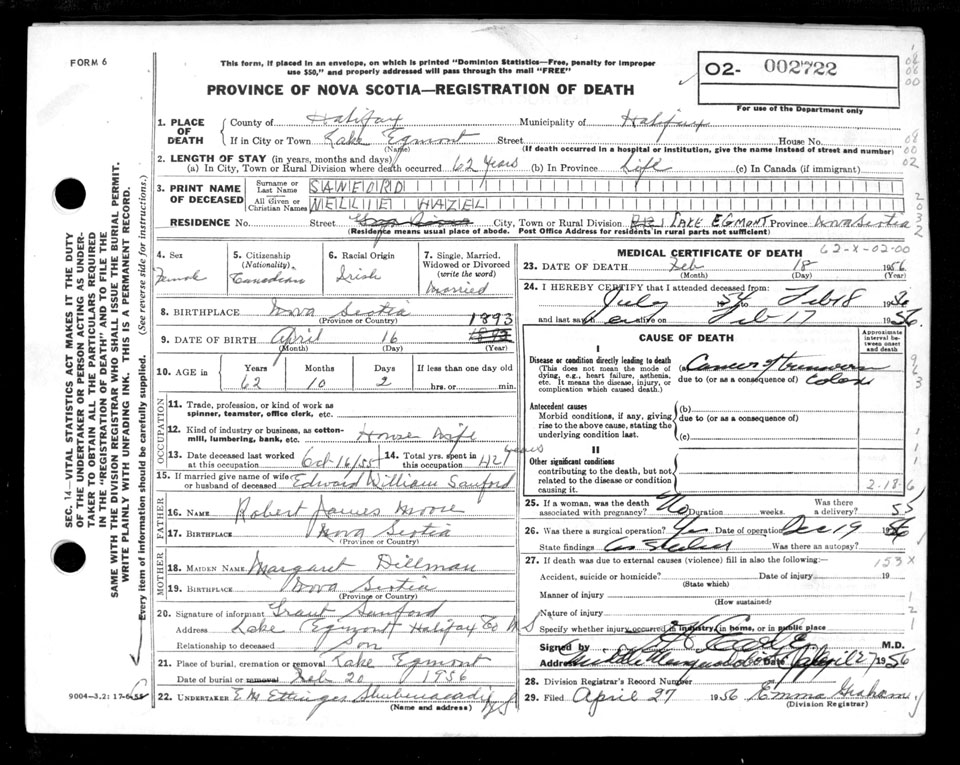 FORM 6
This form, if placed in an envelope, on which is printed "Dominion Statistics—Free, penalty for improper
use $50," and properly addressed will pass through the mail "FREE"
PROVINCE OF NOVA SCOTIA—REGISTRATION OF DEATH
02- 002722
For use of the Department only
1. PLACE OF DEATH
County of Halifax Municipality of Halifax
If in City or Town Lake Egmont Street House No.
(Name) (If death occurred in a hospital or institution, give the name instead of street and number)
2. LENGTH OF STAY (in years, months and days)
(a) In City, Town or Rural Division where death occurred 62 Years (b) In Province Life (c) In Canada (if immigrant)
3. PRINT NAME OF DECEASED
Surname or Last Name SANFORD
All Given or Christian Names NELLIE HAZEL
RESIDENCE No. Street City, Town or Rural Division RR1 LAKE EGMONT Province Nova Scotia
(Residence means usual place of abode. Post Office Address for residents in rural parts not sufficient)
4. Sex Female
5. Citizenship (Nationality) Canadian
6. Racial Origin Irish
7. Single, Married, Widowed or Divorced (write the word) Married
8. BIRTHPLACE Nova Scotia
(Province or Country)
9. DATE OF BIRTH April 16 1893
(Month) (Day) (Year)
10. AGE in Years Months Days If less than one day old
62 10 2 hrs. or min.
OCCUPATION
11. Trade, profession, or kind of work as spinner, teamster, office clerk, etc.
12. Kind of industry or business, as cotton-mill, lumbering, bank, etc. House Wife
13. Date deceased last worked at this occupation Oct 16/55
14. Total yrs. spent in this occupation 42 years
15. If married give name of wife or husband of deceased Edward William Sanford
FATHER
16. NAME Robert James Moore
17. BIRTHPLACE Nova Scotia
(Province or Country)
MOTHER
18. MAIDEN NAME Margaret Dillman
19. BIRTHPLACE Nova Scotia
(Province or Country)
20. Signature of informant Grant Sanford
Address Lake Egmont Halifax Co N S
Relationship to deceased Son
21. Place of burial, cremation or removal Lake Egmont
Date of burial or removal Feb 20 1956
22. UNDERTAKER E.M. Ettinger Shubenacadie N S
(Name and address)
9004—3.2: 17-6-52
62-X-02-00
MEDICAL CERTIFICATE OF DEATH
23. DATE OF DEATH Feb 18 1956
(Month) (Day) (Year)
24. I HEREBY CERTIFY that I attended deceased from:
July 54 to Feb 18 1956
and last saw her alive on Feb 17 1956.
CAUSE OF DEATH
Approximate interval between onset and death
I
Disease or condition directly leading to death
(This does not mean the mode of dying, e.g., heart failure, asthenia, etc. It means the disease, injury, or complication which caused death.)
(a) Cancer of transverse
due to (or as a consequence of) colon
Antecedent causes
Morbid conditions, if any, giving rise to the above cause, stating the underlying condition last.
(b)
due to (or as a consequence of)
(c)
II
Other significant conditions
contributing to the death, but not related to the disease or condition causing it.
2-18-6
25. If a woman, was the death associated with pregnancy? No Duration weeks. Was there a delivery?
26. Was there a surgical operation? Yes Date of operation Dec 19
State findings as stated Was there an autopsy?
27. If death was due to external causes (violence) fill in also the following:—
153X
Accident, suicide or homicide? Date of injury 19
(State which)
Manner of injury
(How sustained)
Nature of injury
Specify whether injury occurred in industry, in home, or in public place
Signed by M.D.
Address Middle Musquodoboit Date April 27 1956
28. Division Registrar's Record Number
29. Filed April 27 1956 Emma Graham
(Division Registrar)
SEC. 14—VITAL STATISTICS ACT MAKES IT THE DUTY
OF THE UNDERTAKER OR PERSON ACTING AS UNDER-
TAKER TO OBTAIN ALL THE PARTICULARS REQUIRED
IN THE "REGISTRATION OF DEATH" AND TO FILE THE
SAME WITH THE DIVISION REGISTRAR WHO SHALL ISSUE THE BURIAL PERMIT.
WRITE PLAINLY WITH UNFADING INK. THIS IS A PERMANENT RECORD.
Every item of information should be carefully supplied. (See reverse side for instructions.)